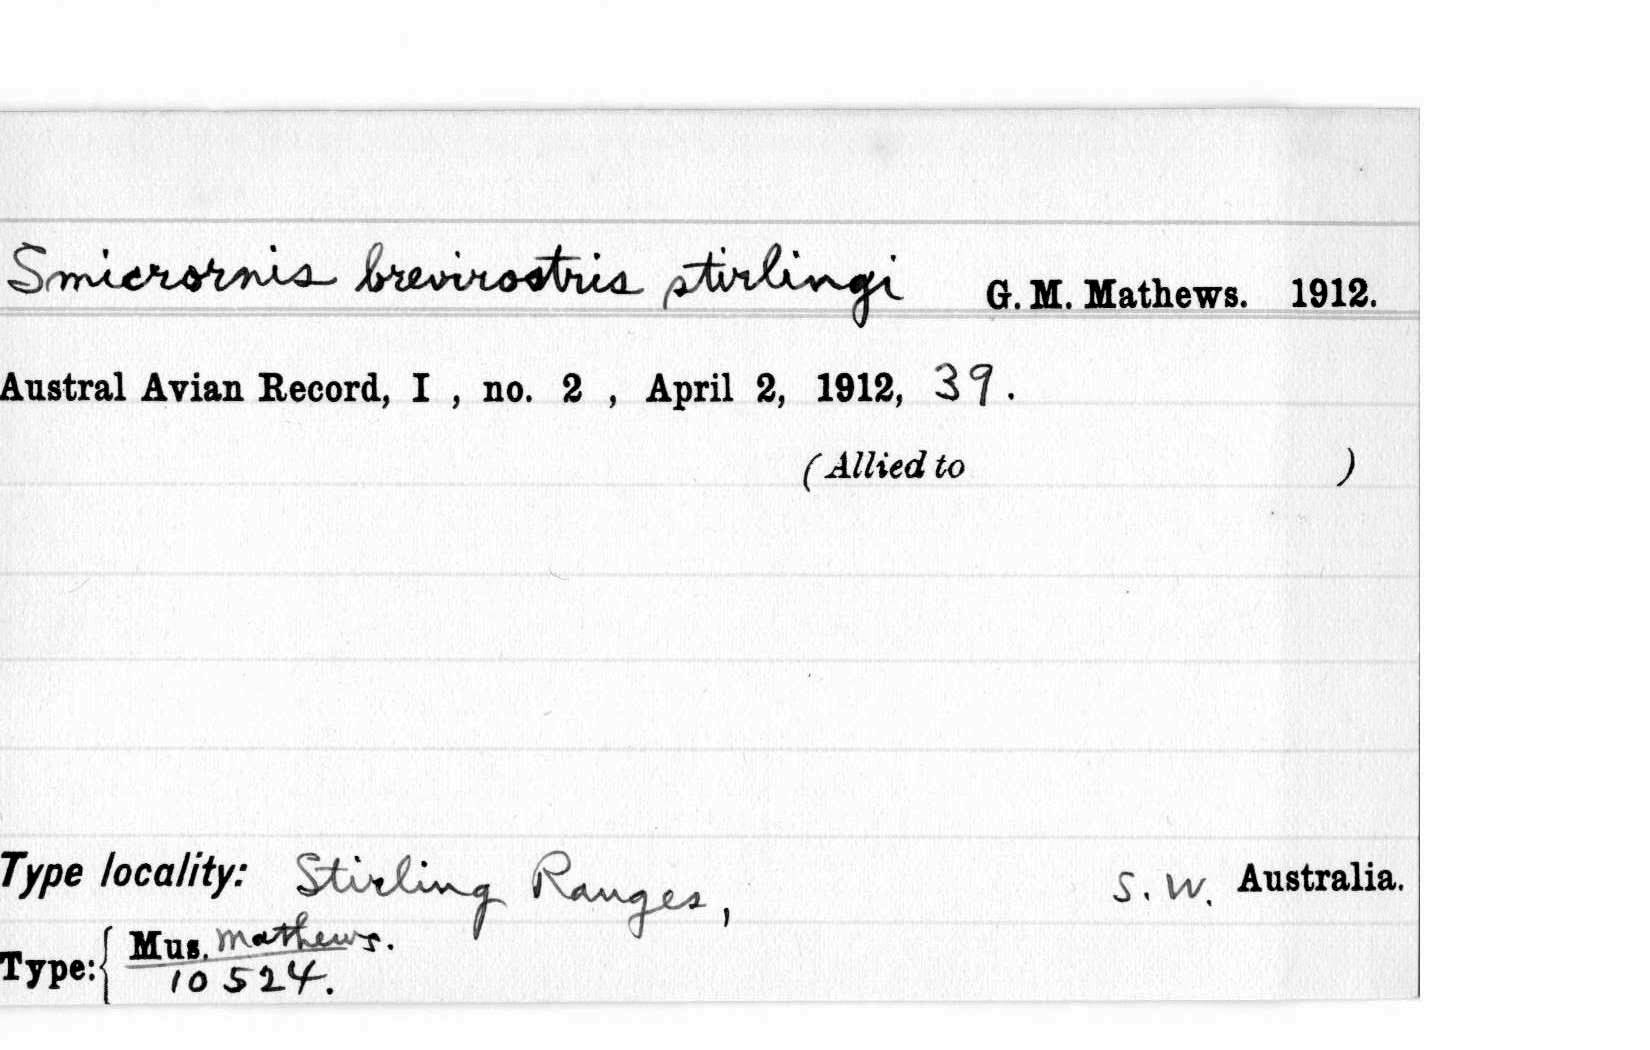 Smicrornis brevirostris stirlingi G. M. Mathews. 1912.
Austral Avian Record, I , no. 2 , April 2, 1912, 39.
(Allied to )
Type locality: Stirling Ranges, S. W. Australia.
Type: { Mus. Mathews.
10524.